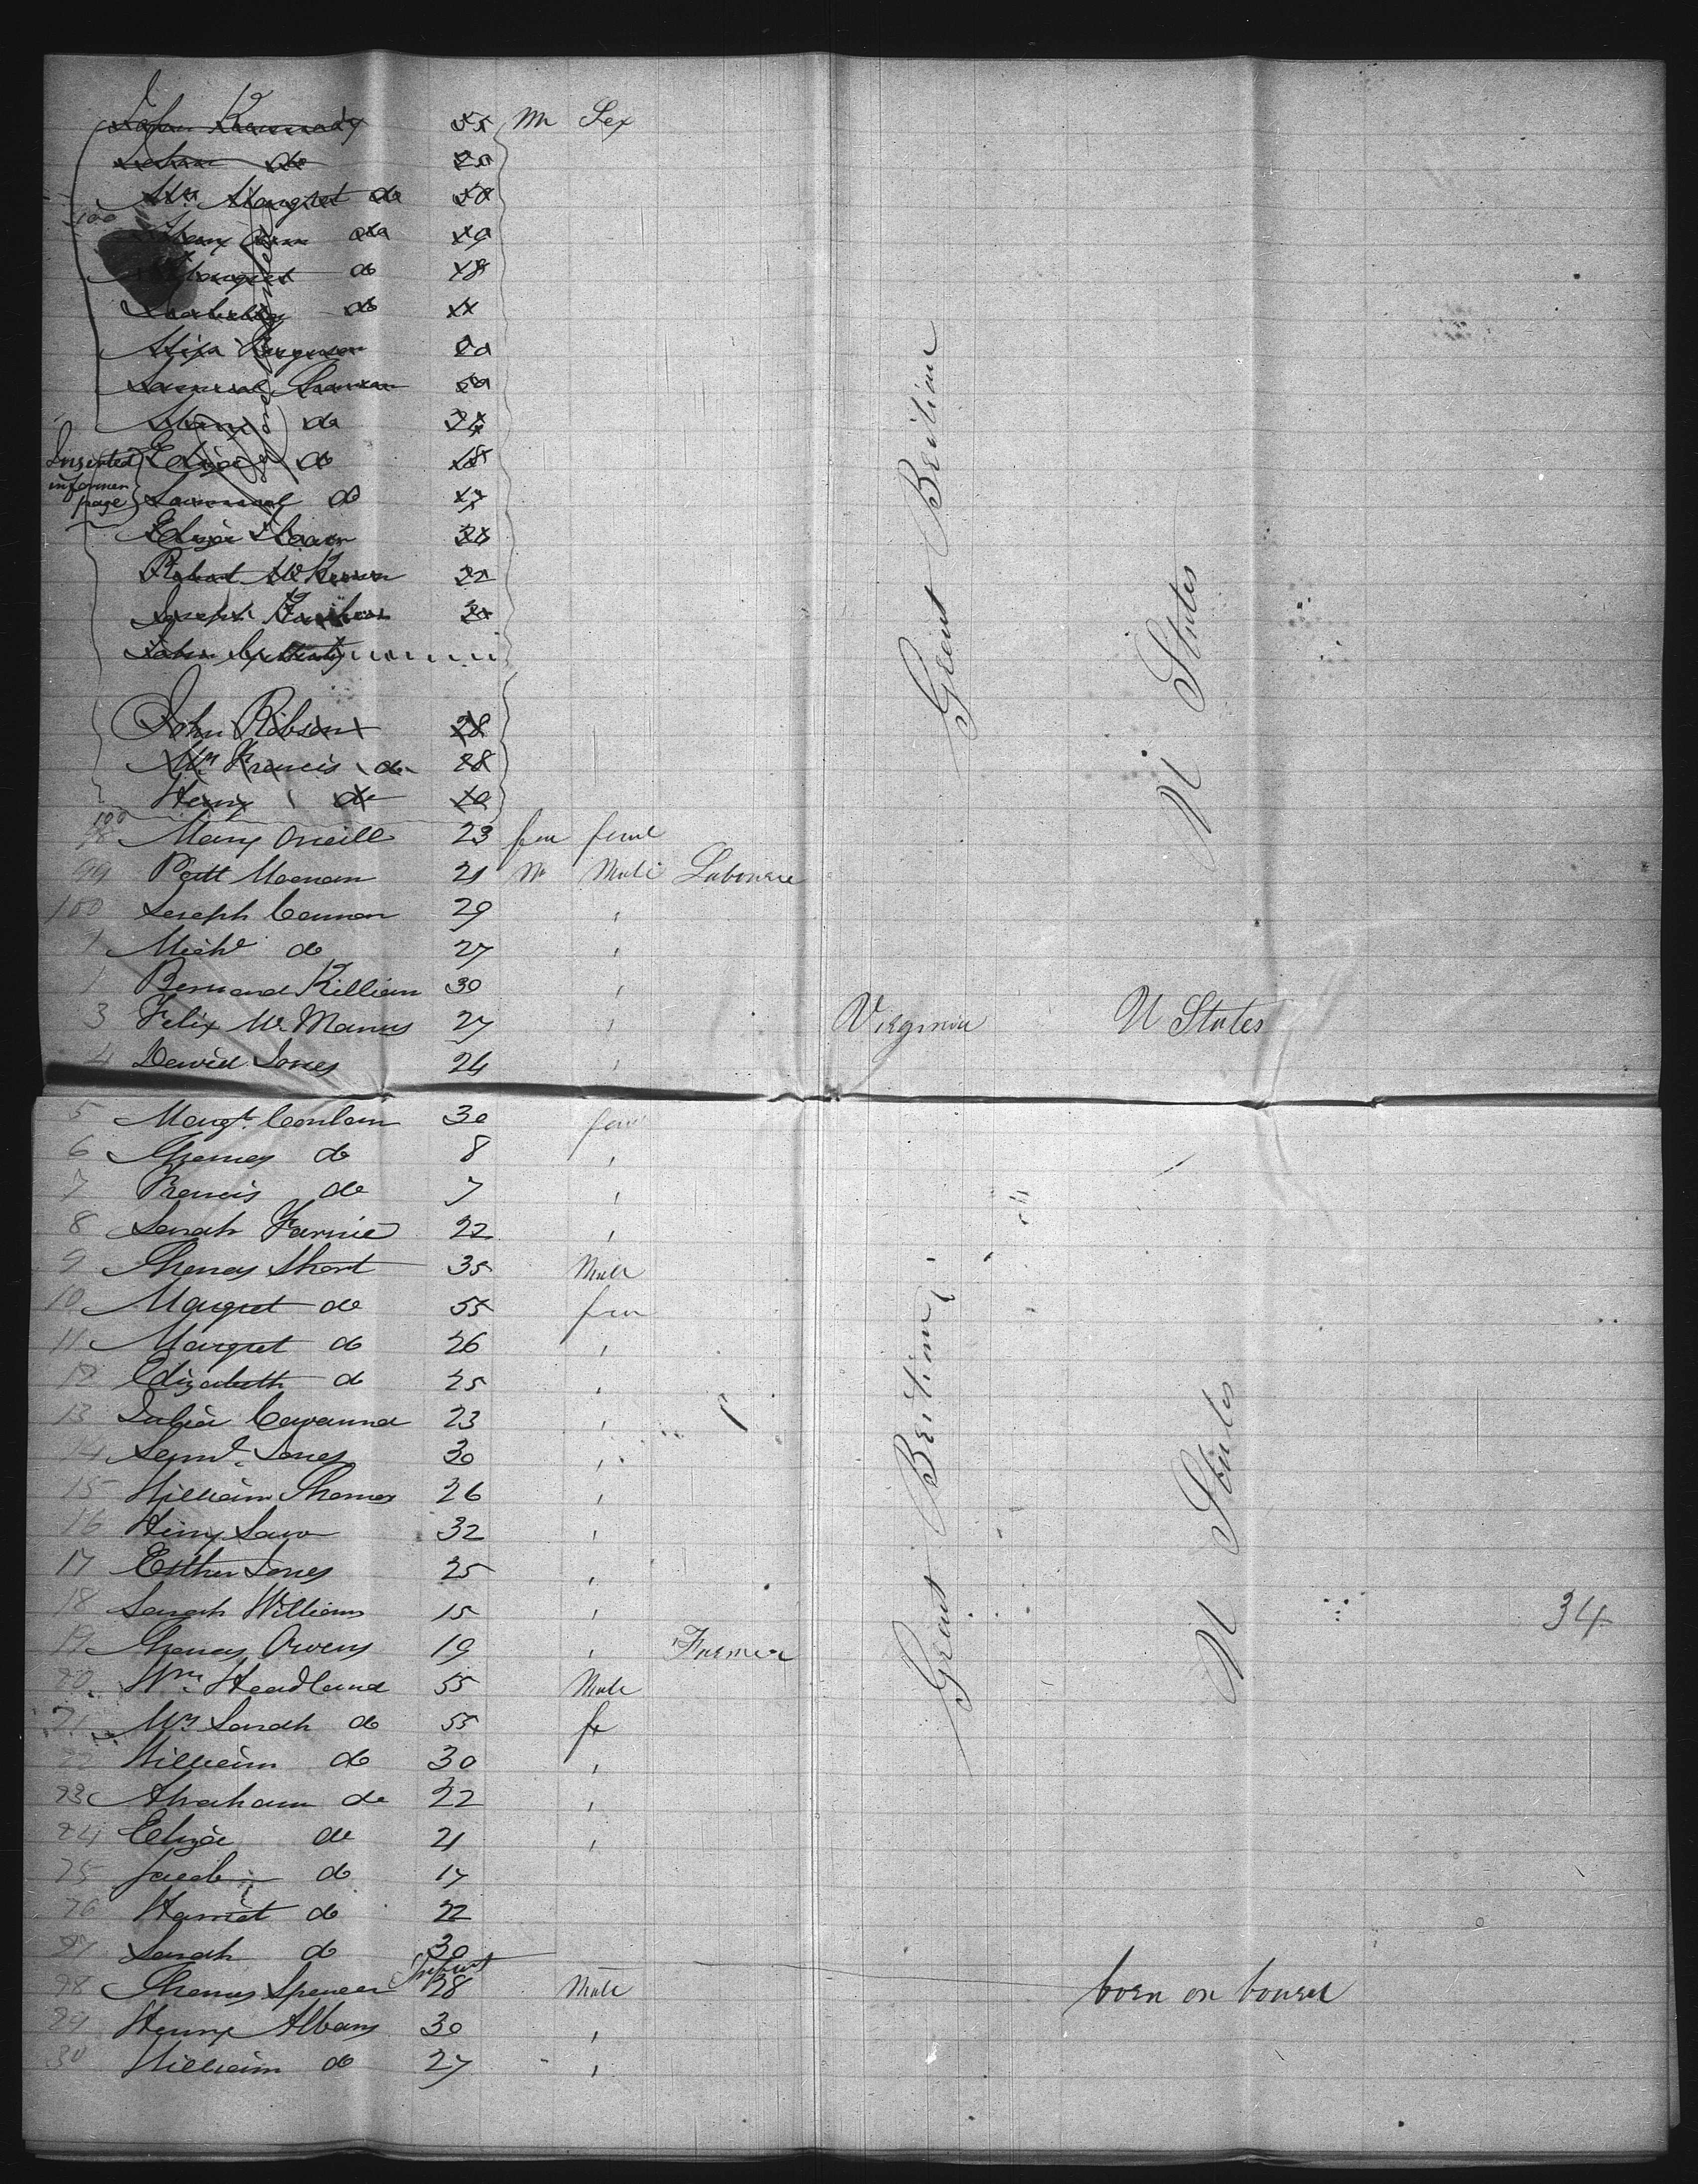 John Kennedy 55 M Sex
John do 20
Mrs Margret do 50
100
Mary Ann do 19
Margret do 18
do
Eliza Ferguson 20
Samuel 50
do
Inserted Eliza do 18
in former
page Samuel do 17
Eliza
Robert McKeown 22
Joseph
John
John Robson 28
Mrs Francis do 28
Henry do 10
100
98 Mary Oneill 23 fem feml
99 Patt 21 M Male Labourer
100 Joseph Cannon 29 "
1 Michl do 27 "
1 Bernard Killian 30 "
3 Felix McManus 27 " Virginia U States
4 David Jones 24 "
Great Britian
U States
5 Margt Conlan 30 fem
6 Thomas do 8 "
7 Francis do 7 "
8 Sarah Farnie 22 "
9 Thomas Short 35 Male
10 Margret do 55 fem
11 Margret do 26 "
12 Elizabeth do 25 "
13 Julia Cavanna 23 "
14 Saml. Jones 30 "
15 William Thomas 26 "
16 Henry Law 32 "
17 Esther Jones 25 "
18 Sarah Williams 15 " 34
19 Thomas Owens 19 " Farmer
20 Wm. Headland 55 Male
21 Mrs Sarah do 55 fe
22 William do 30 "
23 Abraham do 22 "
24 Eliza do 21 "
25 Jacob do 17
26 Harriet do 22
27 Sarah do 30
Infant
28 Thomas Spencer 28 Male born on bourd
29 Henry Albans 30 "
30 William do 27 " "
Great Britian
U States